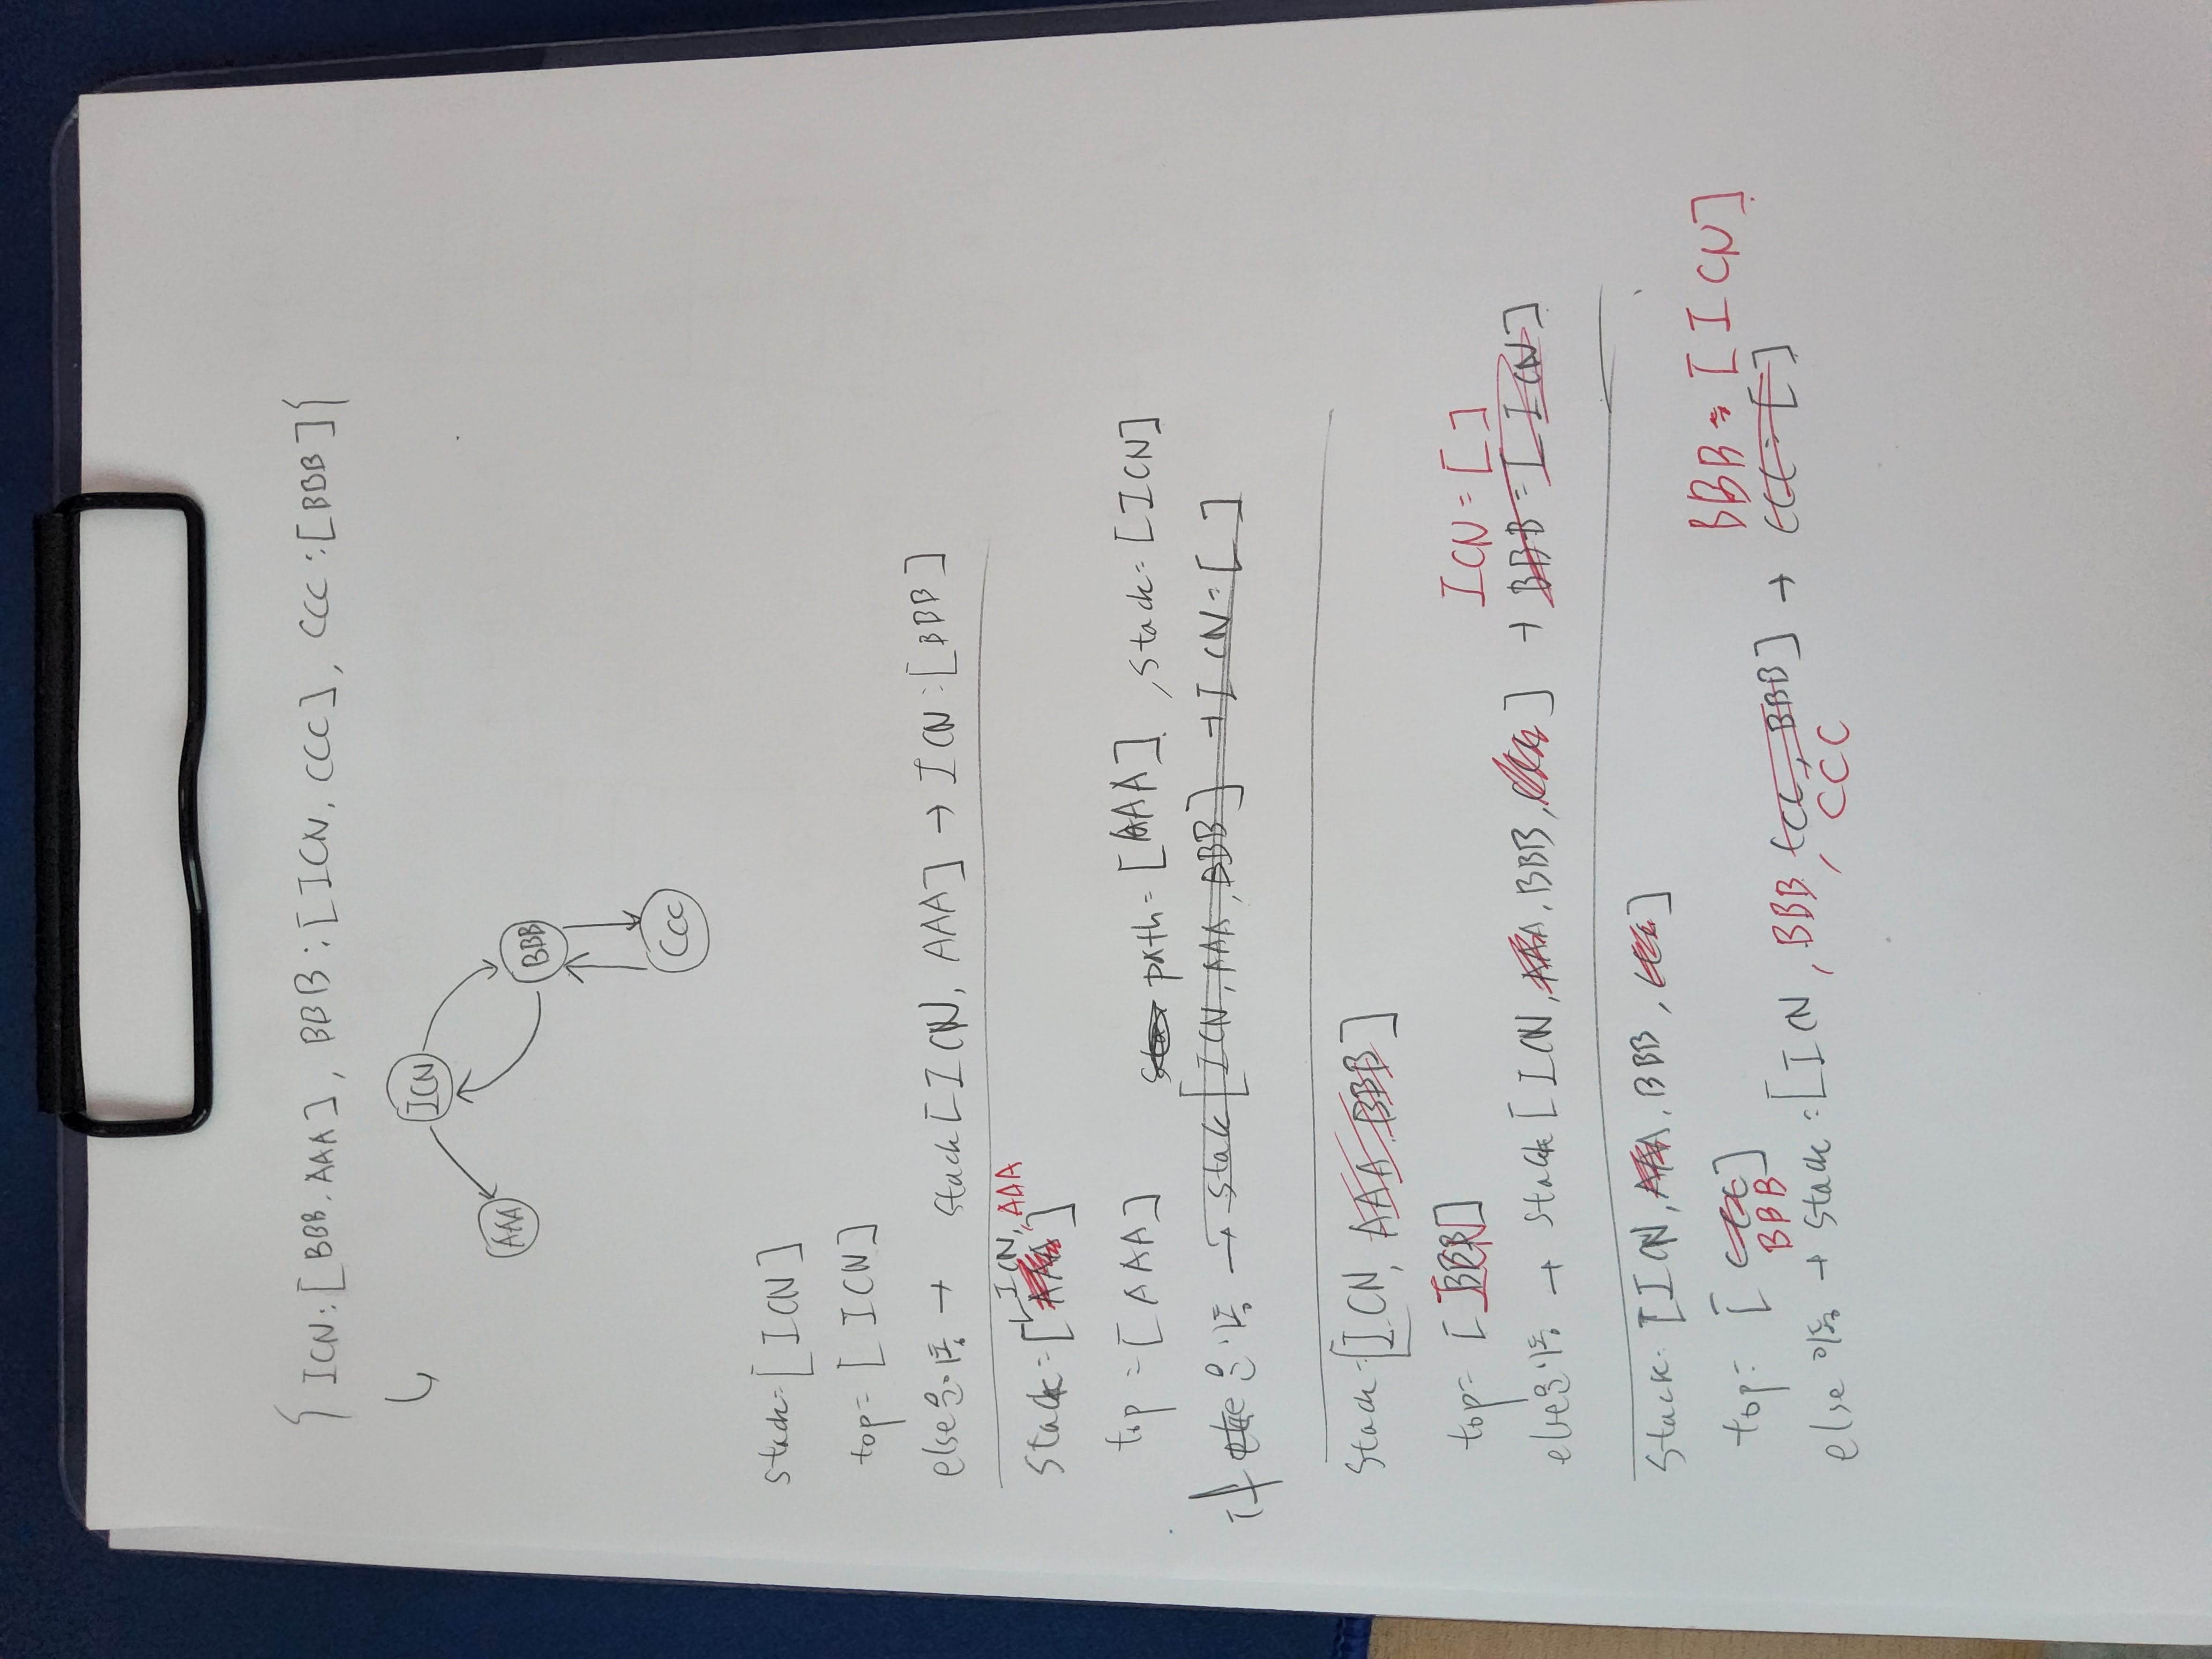 { ICN:[BBB, AAA], BBB:[ICN, CCC], CCC:[BBB] }
ICN
AAA
BBB
CCC
stack=[ICN]
top=[ICN]
else문 이동 → stack[ICN, AAA] → ICN:[BBB]
ICN, AAA
stack=[AAA]
top=[AAA] path=[AAA], stack=[ICN]
if else 문 이동 → stack[ICN, AAA, BBB] → ICN=[ ]
stack=[ICN, AAA, BBB]
top=[ICN] ICN=[ ]
else문 이동 → stack[ICN, AAA, BBB, CCC] → BBB=[ICN]
stack:[ICN, AAA, BBB, CCC]
top=[CCC] BBB=[ICN]
BBB
else 이동 → stack=[ICN, BBB, CCC, BBB] → CCC=[ ]
CCC